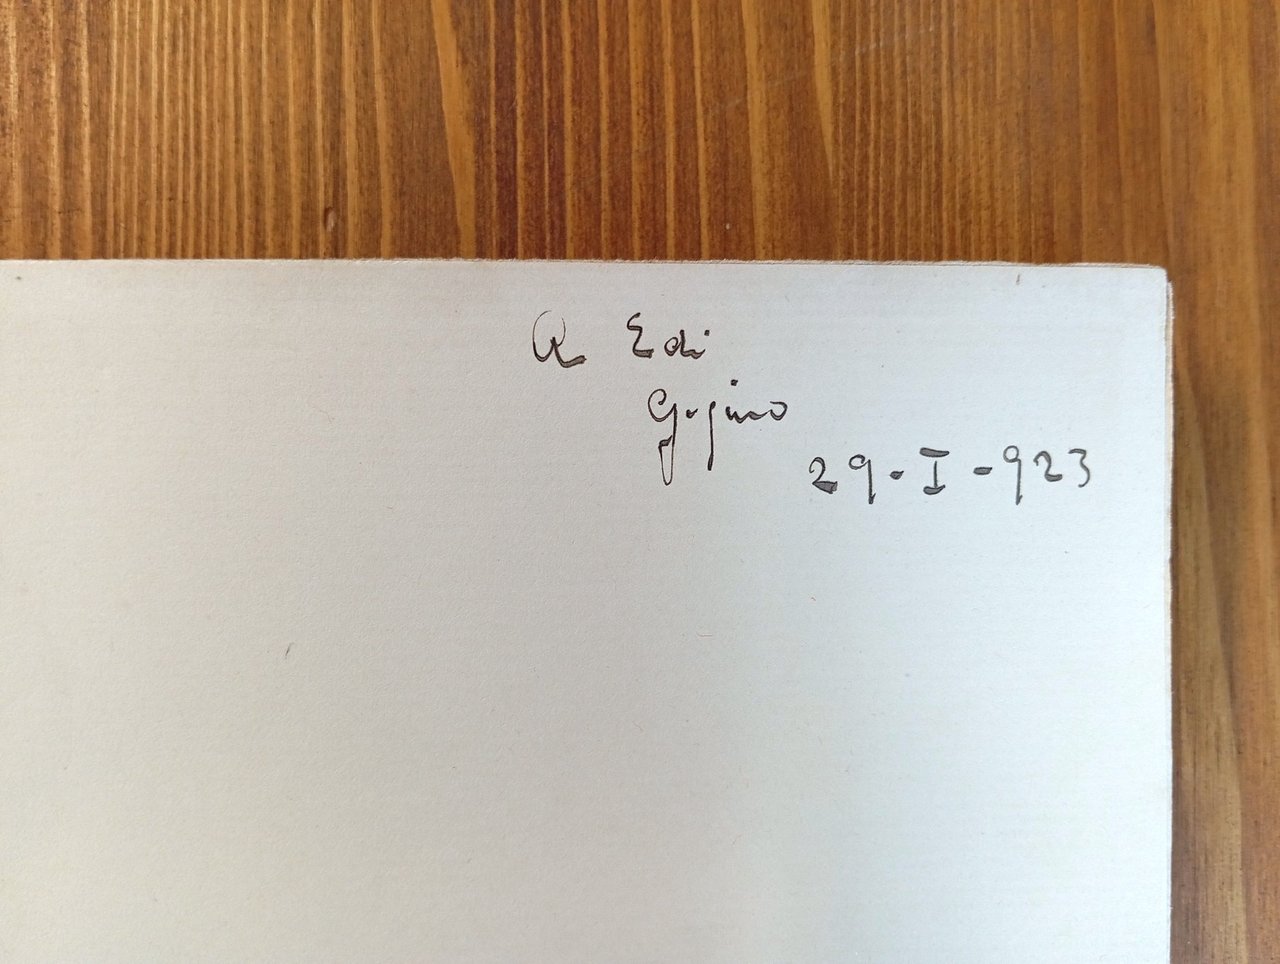 A Edi
Gigino
29-I-923